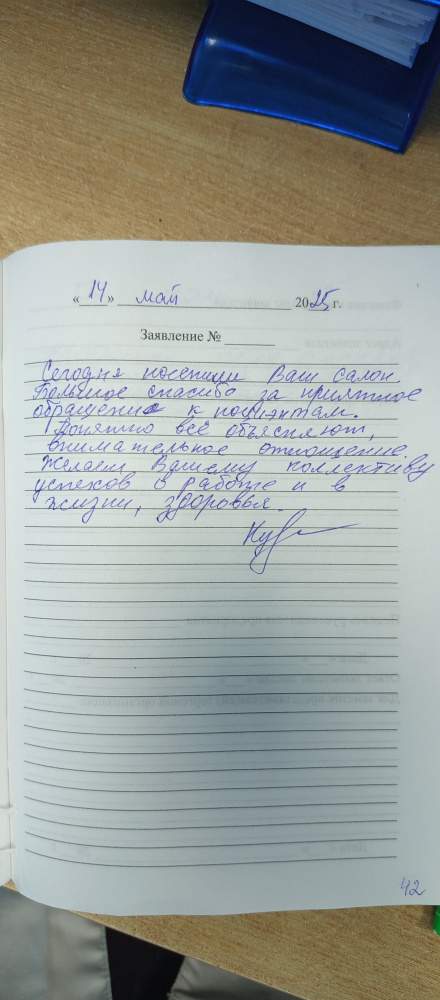 « 14 » май 2025 г.
Заявление №
Сегодня посетили Ваш салон.
Большое спасибо за приятное
обращение к пациэнтам.
Понятно всё объясняют,
внимательное отношение.
Желаем Вашему коллективу
успехов в работе и в
жизни, здоровья.
42